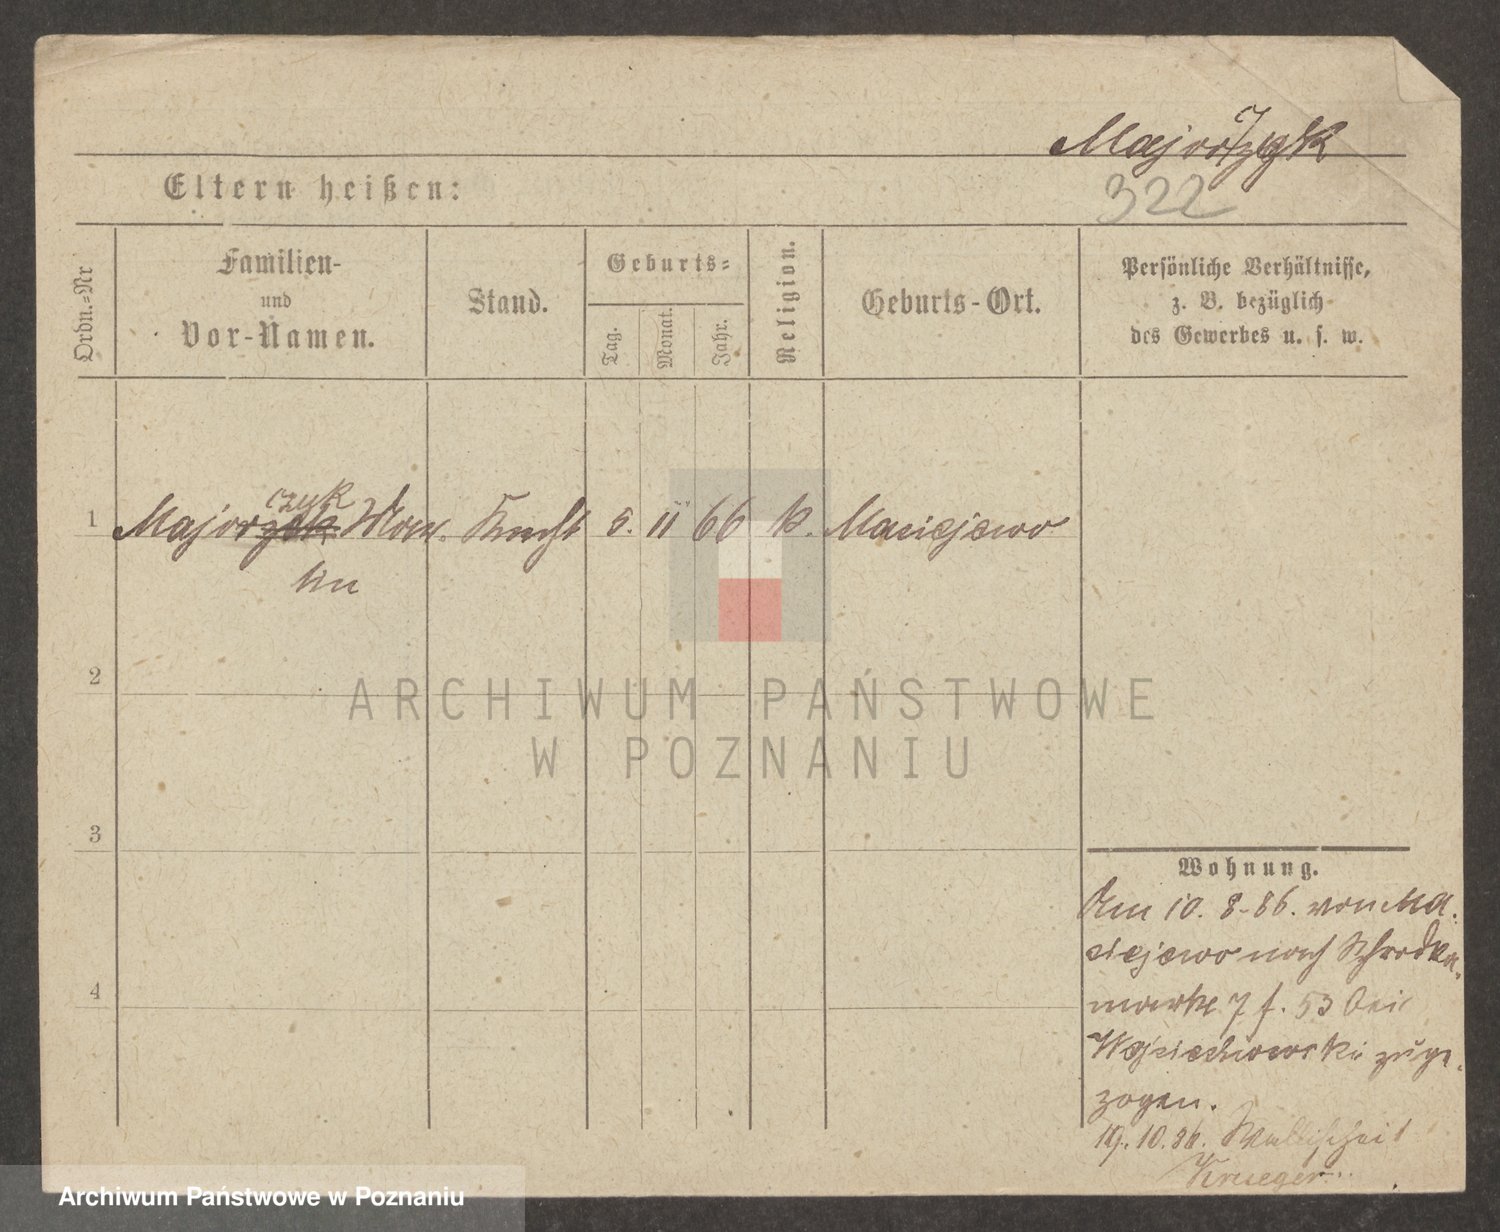 Majorczyk
322
Eltern heißen:
Ordn.=Nr
Familien-
und
Vor-Namen.
Stand.
Geburts=
Tag.
Monat.
Jahr.
Religion.
Geburts-Ort.
Persönliche Verhältnisse,
z. B. bezüglich
des Gewerbes u. s. w.
czyk
1 Majorzek Knecht 5. II 66 k. Maciejewo
tin
2
3
4
ARCHIWUM PAŃSTWOWE
W POZNANIU
Wohnung.
Am 10. 8-86. von Ma-
ciejewo nach Schrodka-
markt 7 f. 53 bei
Wojciechowski zuge-
zogen.
19.10.86. Wallischei
Krueger
Archiwum Państwowe w Poznaniu